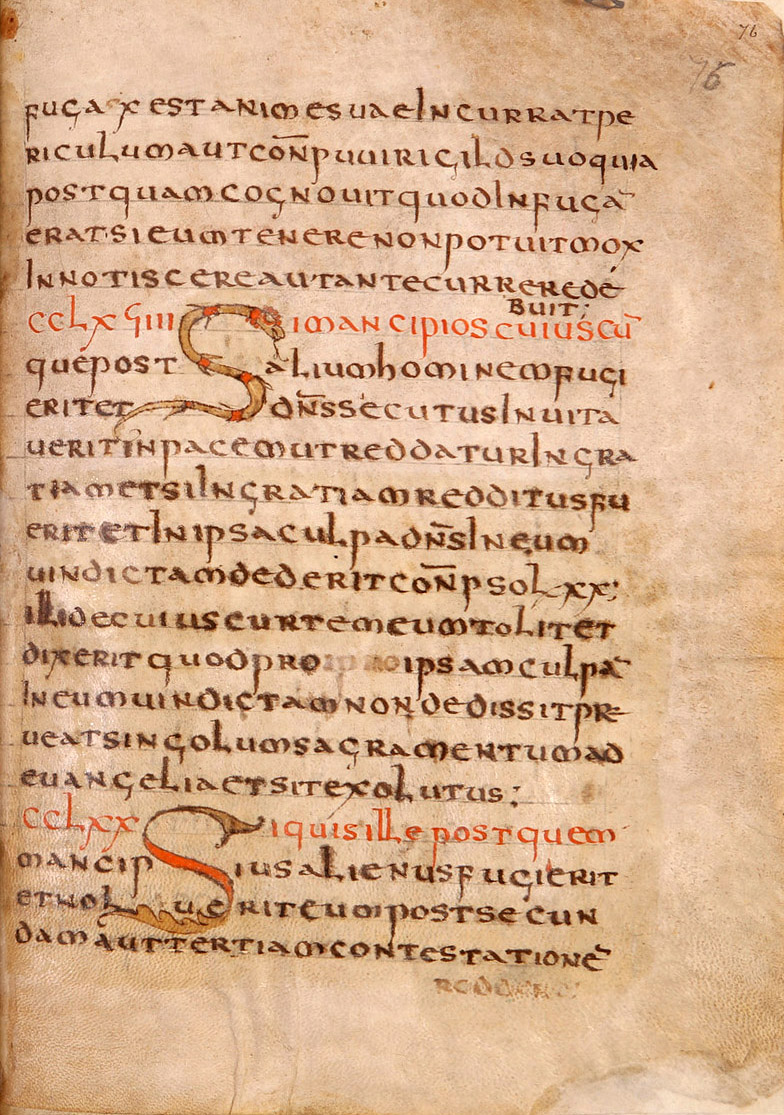 76
76
fuga x est animes uae incurrat pe
riculum aut conp uuirigild suo quia
postquam cognouit quod in fuga
erat si eum tenere non potuit mox
innotiscere aut antecurrere de
buit;
cclxuiiii Si mancipios cuiuscū
que post alium hominem fugi
erit et dns secutus inuita
uerit in pacem ut reddatur in gra
tiam et si in gratiam redditus fu
erit et in ipsa culpa dns in eum
uindictam dederit conp sol xx;
illi de cuius curtem eum tolit et
dixerit quod pro ipsam culpā
in eum uindictam non dedissit pr
ueat singolum sacramentum ad
euangelia et sit exolutus;
cclxx Si quis ille post quem
mancipius alienus fugierit
et nol uerit eum post secun
dam aut tertiam contestationē